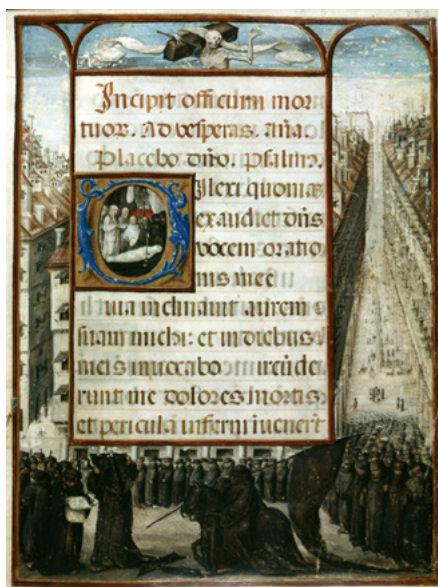 Incipit officium mor
tuor. Ad vesperas. aña.
Placebo dño. Psalm9.
Dilexi quoniã
exaudiet dñs
vocem oratio
nis mee
Quia inclinauit aurem
suam michi: et in diebus
meis inuocabo Circũde
runt me dolores mortis:
et pericula inferni īuenert̃